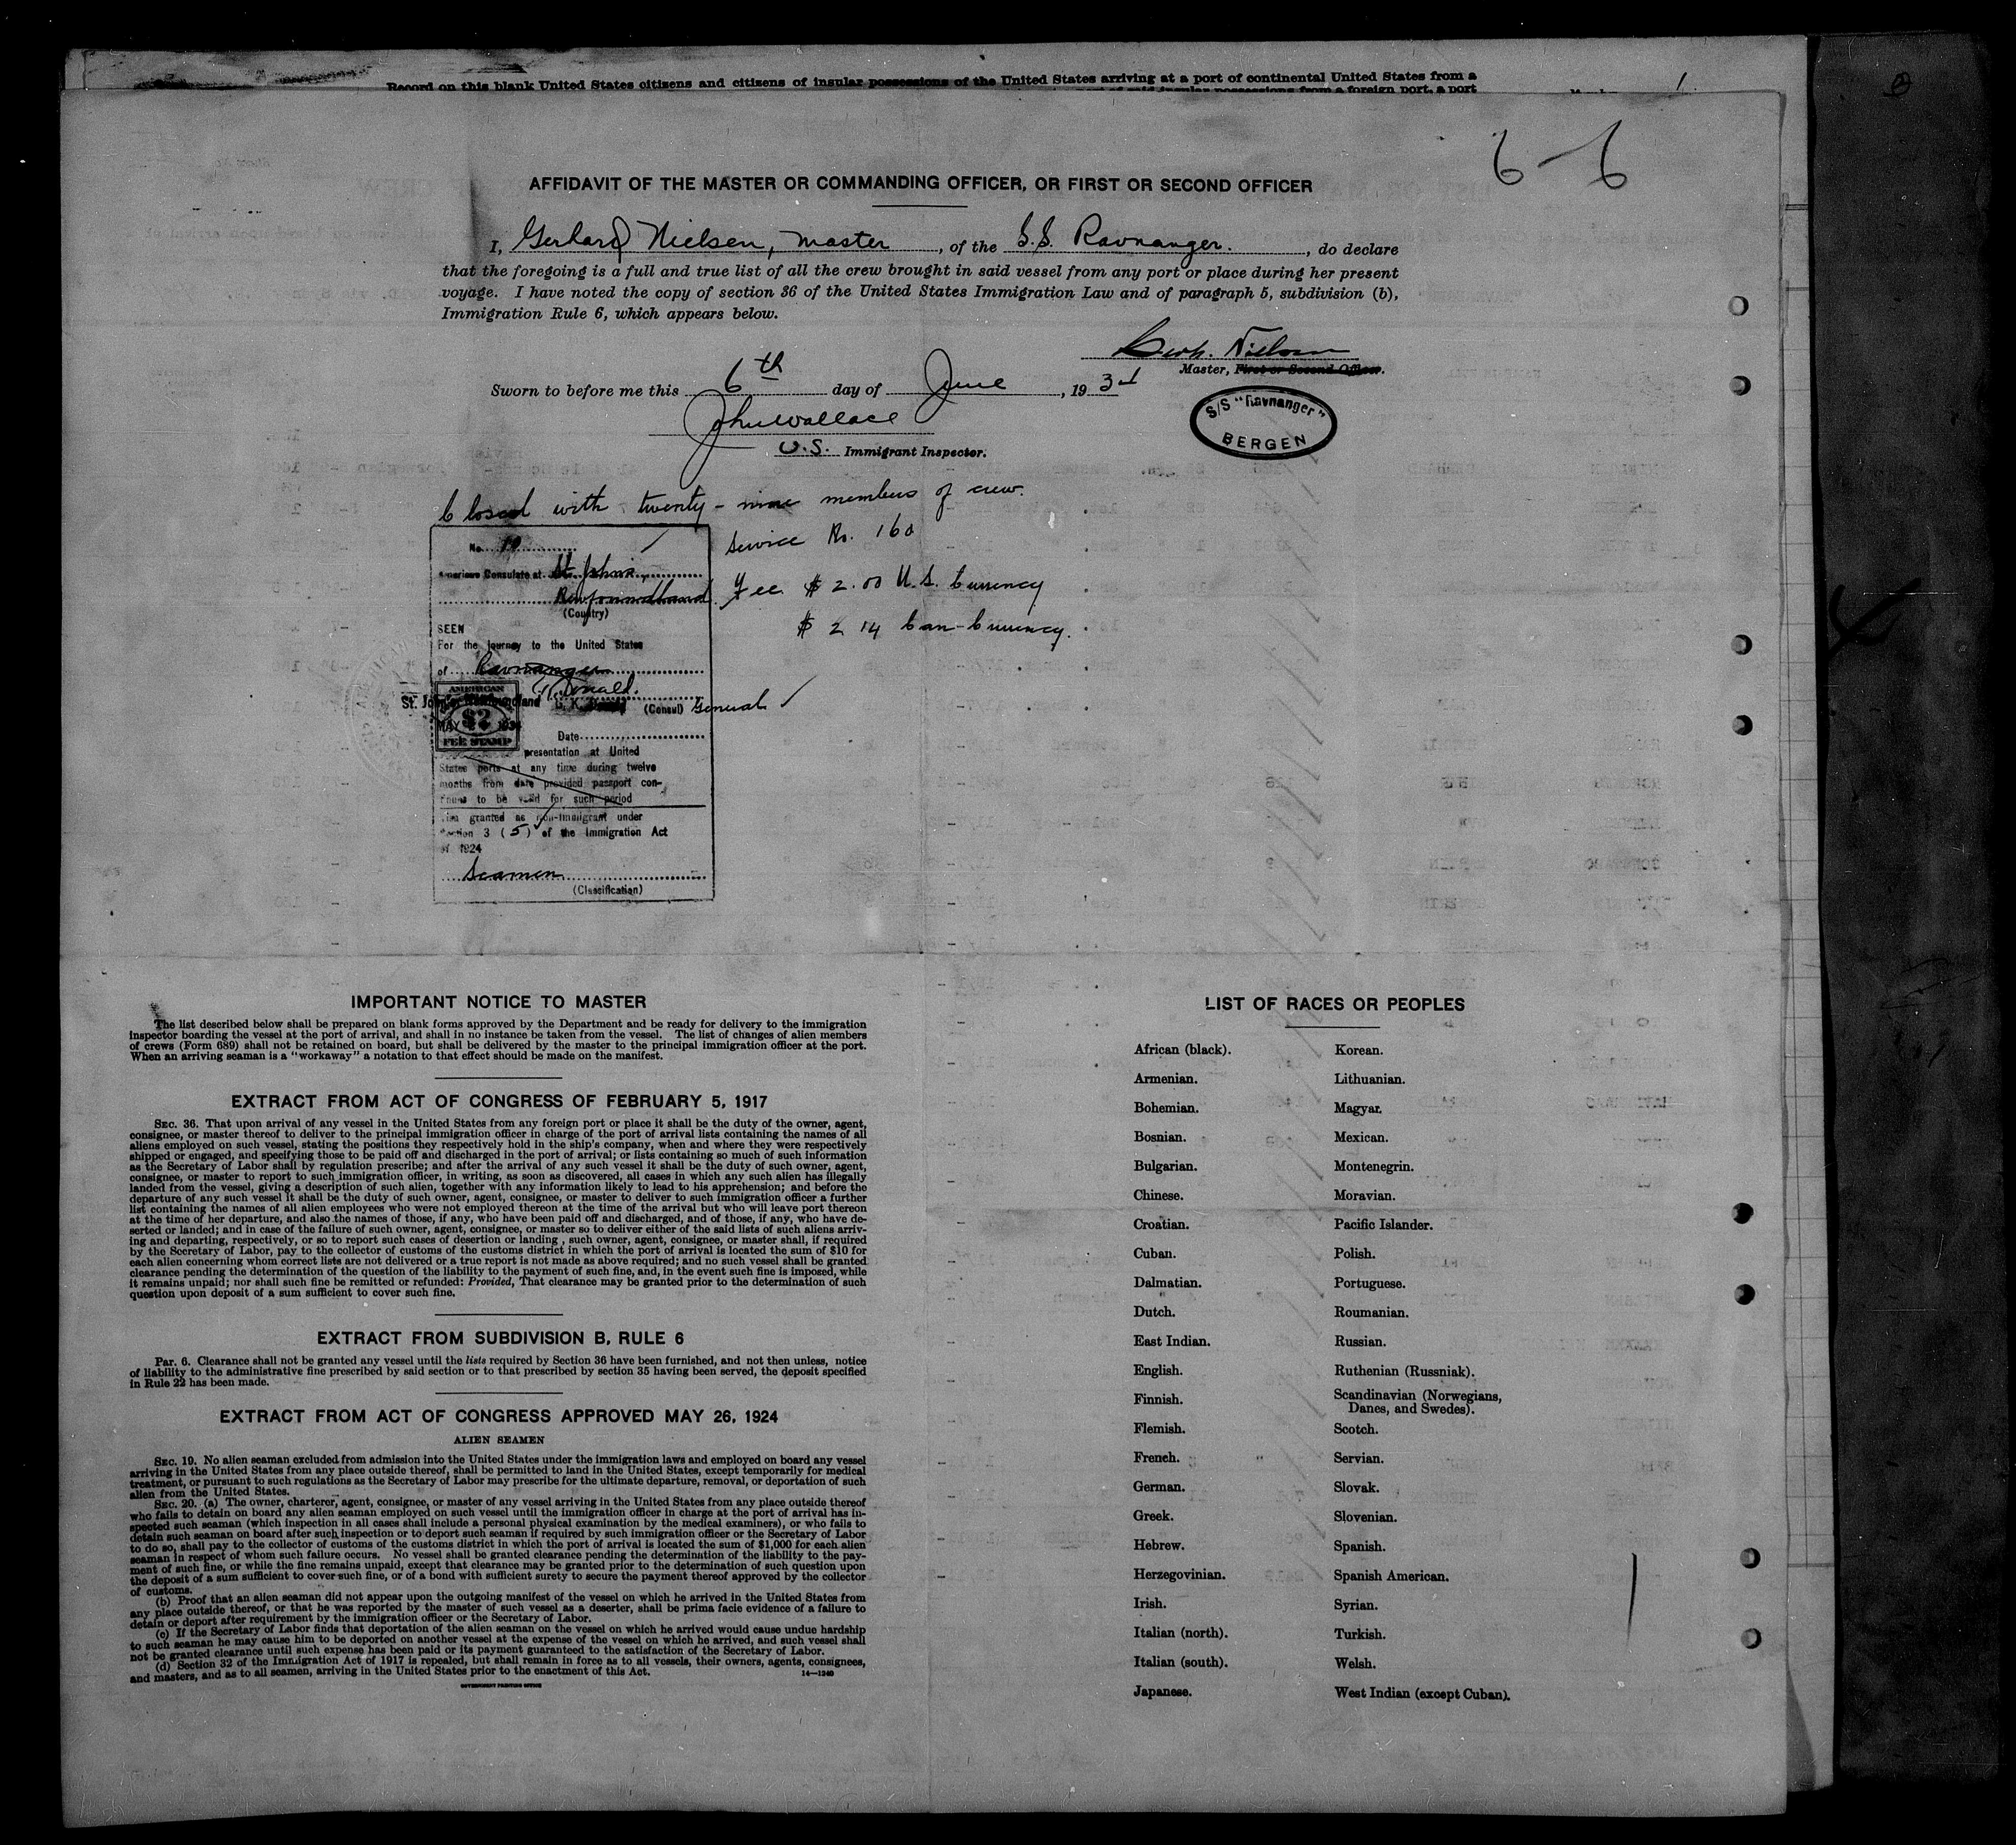 Record on this blank United States citizens and citizens of insular possessions of the United States arriving at a port of continental United States from a
of said insular possessions from a foreign port, a port
1
6-6
AFFIDAVIT OF THE MASTER OR COMMANDING OFFICER, OR FIRST OR SECOND OFFICER
I, Gerhard Nielsen, master, of the S.S. Ravnanger., do declare
that the foregoing is a full and true list of all the crew brought in said vessel from any port or place during her present
voyage. I have noted the copy of section 36 of the United States Immigration Law and of paragraph 5, subdivision (b),
Immigration Rule 6, which appears below.
Gerh. Nielsen
Master, First or Second Officer.
Sworn to before me this 6th day of June, 193
John Wallace
U.S. Immigrant Inspector.
S/S "Ravnanger"
BERGEN
Closed with twenty-nine members of crew.
Service No. 160
Fee $2.00 U.S. Currency
$2.14 Can-Currency.
No. 10
American Consulate at St. John's,
Newfoundland
(Country)
SEEN
For the journey to the United States
of Ravnanger
G. K. Donald.
St. John's, Newfoundland G. K. Donald (Consul) General
AMERICAN
$2
FEE STAMP
MAY
Date
presentation at United
States ports at any time during twelve
months from date provided passport con-
tinues to be valid for such period
Visa granted as non-immigrant under
Section 3 (5) of the Immigration Act
of 1924
Seamen
(Classification)
IMPORTANT NOTICE TO MASTER
The list described below shall be prepared on blank forms approved by the Department and be ready for delivery to the immigration
inspector boarding the vessel at the port of arrival, and shall in no instance be taken from the vessel. The list of changes of alien members
of crews (Form 689) shall not be retained on board, but shall be delivered by the master to the principal immigration officer at the port.
When an arriving seaman is a "workaway" a notation to that effect should be made on the manifest.
EXTRACT FROM ACT OF CONGRESS OF FEBRUARY 5, 1917
SEC. 36. That upon arrival of any vessel in the United States from any foreign port or place it shall be the duty of the owner, agent,
consignee, or master thereof to deliver to the principal immigration officer in charge of the port of arrival lists containing the names of all
aliens employed on such vessel, stating the positions they respectively hold in the ship's company, when and where they were respectively
shipped or engaged, and specifying those to be paid off and discharged in the port of arrival; or lists containing so much of such information
as the Secretary of Labor shall by regulation prescribe; and after the arrival of any such vessel it shall be the duty of such owner, agent,
consignee, or master to report to such immigration officer, in writing, as soon as discovered, all cases in which any such alien has illegally
landed from the vessel, giving a description of such alien, together with any information likely to lead to his apprehension; and before the
departure of any such vessel it shall be the duty of such owner, agent, consignee, or master to deliver to such immigration officer a further
list containing the names of all alien employees who were not employed thereon at the time of the arrival but who will leave port thereon
at the time of her departure, and also the names of those, if any, who have been paid off and discharged, and of those, if any, who have de-
serted or landed; and in case of the failure of such owner, agent, consignee, or master so to deliver either of the said lists of such aliens arriv-
ing and departing, respectively, or so to report such cases of desertion or landing , such owner, agent, consignee, or master shall, if required
by the Secretary of Labor, pay to the collector of customs of the customs district in which the port of arrival is located the sum of $10 for
each alien concerning whom correct lists are not delivered or a true report is not made as above required; and no such vessel shall be granted
clearance pending the determination of the question of the liability to the payment of such fine, and, in the event such fine is imposed, while
it remains unpaid; nor shall such fine be remitted or refunded: Provided, That clearance may be granted prior to the determination of such
question upon deposit of a sum sufficient to cover such fine.
EXTRACT FROM SUBDIVISION B, RULE 6
Par. 6. Clearance shall not be granted any vessel until the lists required by Section 36 have been furnished, and not then unless, notice
of liability to the administrative fine prescribed by said section or to that prescribed by section 35 having been served, the deposit specified
in Rule 22 has been made.
EXTRACT FROM ACT OF CONGRESS APPROVED MAY 26, 1924
ALIEN SEAMEN
SEC. 19. No alien seaman excluded from admission into the United States under the immigration laws and employed on board any vessel
arriving in the United States from any place outside thereof, shall be permitted to land in the United States, except temporarily for medical
treatment, or pursuant to such regulations as the Secretary of Labor may prescribe for the ultimate departure, removal, or deportation of such
alien from the United States.
SEC. 20. (a) The owner, charterer, agent, consignee, or master of any vessel arriving in the United States from any place outside thereof
who fails to detain on board any alien seaman employed on such vessel until the immigration officer in charge at the port of arrival has in-
spected such seaman (which inspection in all cases shall include a personal physical examination by the medical examiners), or who fails to
detain such seaman on board after such inspection or to deport such seaman if required by such immigration officer or the Secretary of Labor
to do so, shall pay to the collector of customs of the customs district in which the port of arrival is located the sum of $1,000 for each alien
seaman in respect of whom such failure occurs. No vessel shall be granted clearance pending the determination of the liability to the pay-
ment of such fine, or while the fine remains unpaid, except that clearance may be granted prior to the determination of such question upon
the deposit of a sum sufficient to cover such fine, or of a bond with sufficient surety to secure the payment thereof approved by the collector
of customs.
(b) Proof that an alien seaman did not appear upon the outgoing manifest of the vessel on which he arrived in the United States from
any place outside thereof, or that he was reported by the master of such vessel as a deserter, shall be prima facie evidence of a failure to
detain or deport after requirement by the immigration officer or the Secretary of Labor.
(c) If the Secretary of Labor finds that deportation of the alien seaman on the vessel on which he arrived would cause undue hardship
to such seaman he may cause him to be deported on another vessel at the expense of the vessel on which he arrived, and such vessel shall
not be granted clearance until such expense has been paid or its payment guaranteed to the satisfaction of the Secretary of Labor.
(d) Section 32 of the Immigration Act of 1917 is repealed, but shall remain in force as to all vessels, their owners, agents, consignees,
and masters, and as to all seamen, arriving in the United States prior to the enactment of this Act.
14—1240
GOVERNMENT PRINTING OFFICE
LIST OF RACES OR PEOPLES
African (black).
Armenian.
Bohemian.
Bosnian.
Bulgarian.
Chinese.
Croatian.
Cuban.
Dalmatian.
Dutch.
East Indian.
English.
Finnish.
Flemish.
French.
German.
Greek.
Hebrew.
Herzegovinian.
Irish.
Italian (north).
Italian (south).
Japanese.
Korean.
Lithuanian.
Magyar.
Mexican.
Montenegrin.
Moravian.
Pacific Islander.
Polish.
Portuguese.
Roumanian.
Russian.
Ruthenian (Russniak).
Scandinavian (Norwegians,
Danes, and Swedes).
Scotch.
Servian.
Slovak.
Slovenian.
Spanish.
Spanish American.
Syrian.
Turkish.
Welsh.
West Indian (except Cuban).